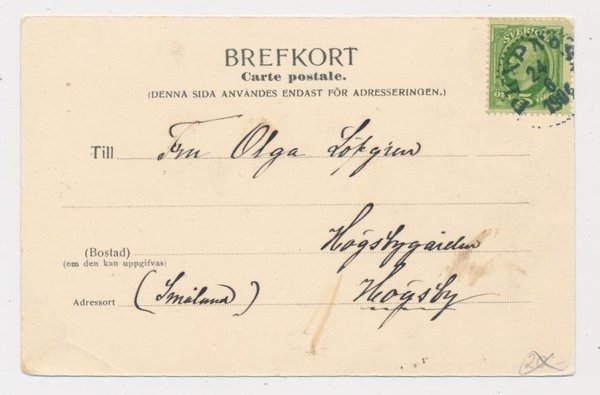 BREFKORT
Carte postale.
(DENNA SIDA ANVÄNDES ENDAST FÖR ADRESSERINGEN.)
SVERIGE
24
1906
Till Fru Olga Löfgren
Högsbygården
(Bostad)
(om den kan uppgifvas)
Adressort (Småland) Högsby
20-